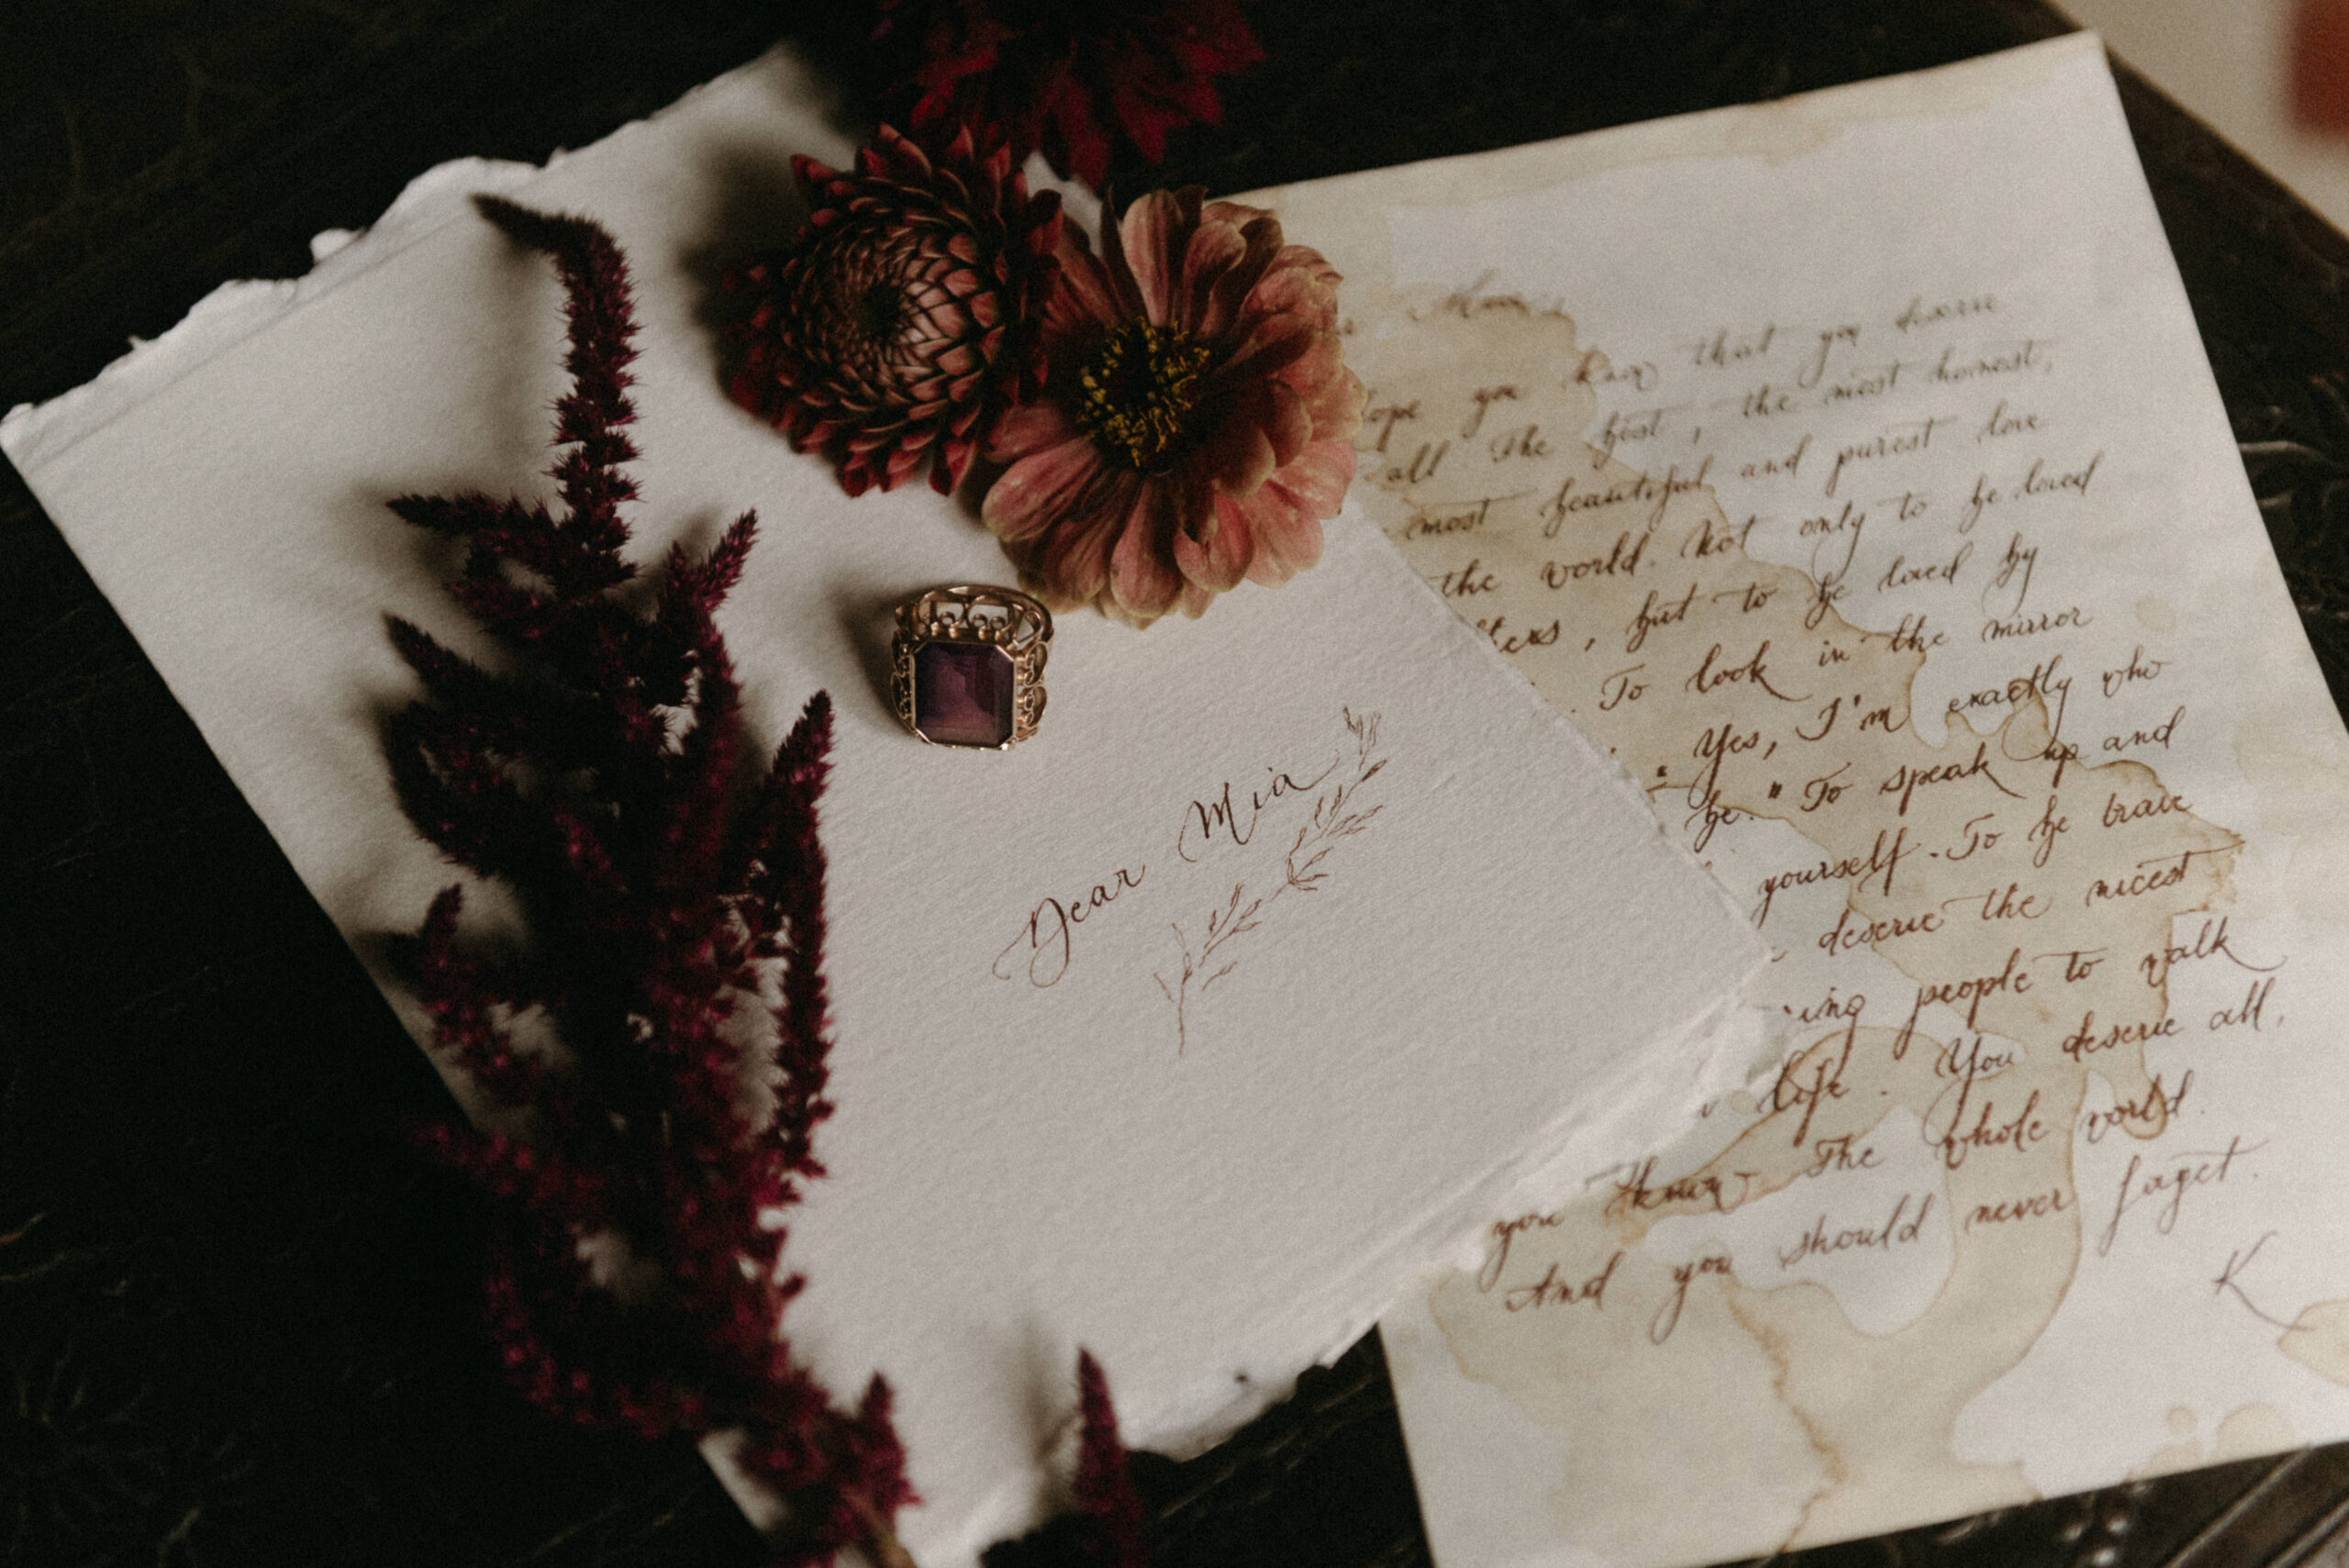 Dear Mia
you know that you deserve
all. The best, the most honest,
most beautiful and purest love
the world. Not only to be loved
, but to be loved by
. To look in the mirror
" Yes, I'm exactly who
be." To speak up and
yourself. To be brave
deserve the nicest
people to walk
life. You deserve all,
you know. The whole world.
And you should never forget.
K